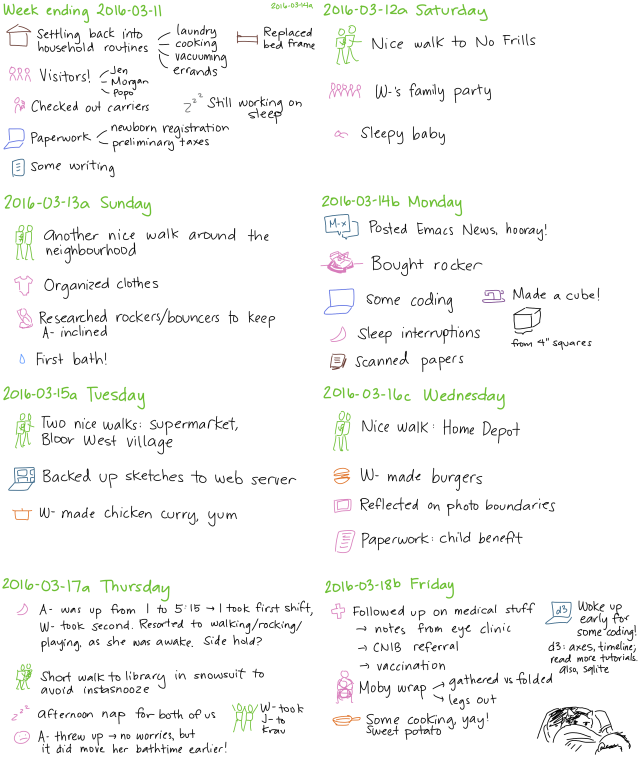 Week ending 2016-03-11
2016-03-14a
Settling back into
household routines
laundry
cooking
vacuuming
errands
Replaced
bed frame
Visitors!
Jen
Morgan
Popo
Checked out carriers
zzz
Still working on
sleep
Paperwork
newborn registration
preliminary taxes
Some writing
2016-03-12a Saturday
Nice walk to No Frills
W-'s family party
Sleepy baby
2016-03-13a Sunday
Another nice walk around the
neighbourhood
Organized clothes
Researched rockers/bouncers to keep
A- inclined
First bath!
2016-03-14b Monday
M-x
Posted Emacs News, hooray!
Bought rocker
Some coding
Made a cube!
from 4" squares
Sleep interruptions
Scanned papers
2016-03-15a Tuesday
Two nice walks: supermarket,
Bloor West village
Backed up sketches to web server
W- made chicken curry, yum
2016-03-16c Wednesday
Nice walk: Home Depot
W- made burgers
Reflected on photo boundaries
Paperwork: child benefit
2016-03-17a Thursday
A- was up from 1 to 5:15 → I took first shift,
W- took second. Resorted to walking/rocking/
playing, as she was awake. Side hold?
Short walk to library in snowsuit to
avoid instasnooze
zzz
afternoon nap for both of us
W- took
J- to
Krav
A- threw up → no worries, but
it did move her bathtime earlier!
2016-03-18b Friday
Followed up on medical stuff
→ notes from eye clinic
→ CNIB referral
→ vaccination
d3
Woke up
early for
some coding!
d3: axes, timeline,
read more tutorials.
also, sqlite
Moby wrap
gathered vs folded
legs out
Some cooking, yay!
sweet potato